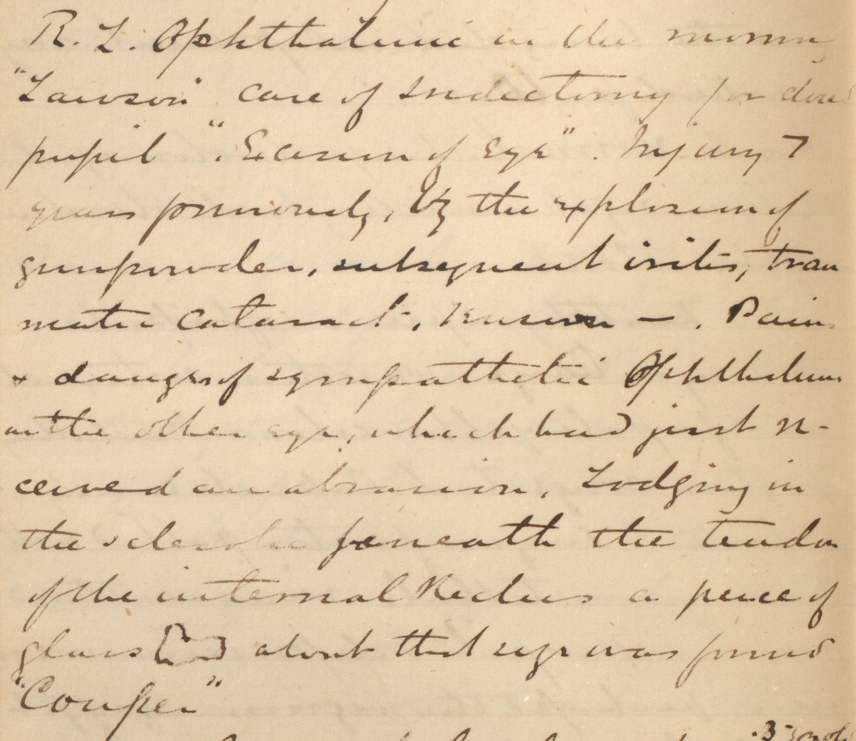 R. L. Ophthalmic in the morning
"Lawson" case of Iridectomy for closed
pupil ". Excision of Eye". Injury 7
years previously, by the explosion of
gunpowder, subsequent iritis, trau
matic cataract. Pain
& danger of sympathetic Ophthalmia
in the other eye, which had just re-
ceived an abrasion. Lodging in
the sclerotic beneath the tendon
of the internal Rectus a peice of
glass about that size was found
"Couper"